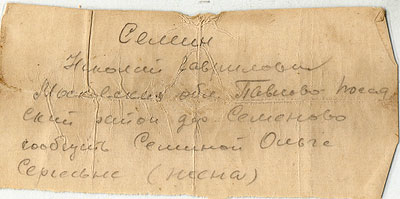 Семин
Николай Гаврилович
Московская обл. Павлово Посад
ский район дер Семеново
сообщить Семиной Ольге
Сергевне (жена)